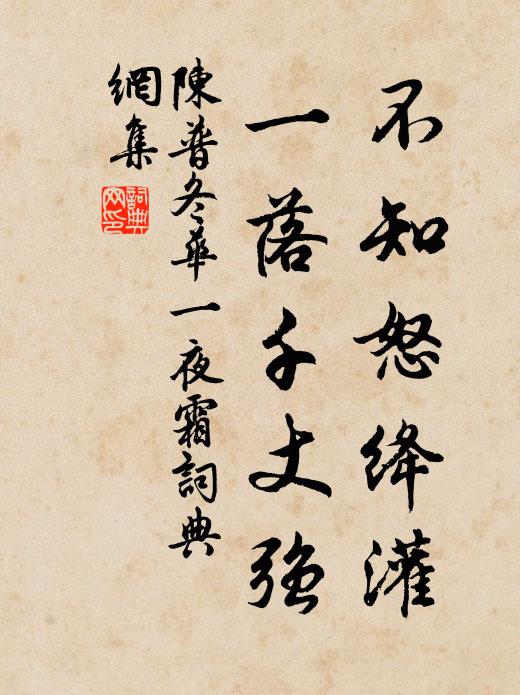 不知怒绛灌
一落千丈強
陳普冬華一夜霜詞典
網集
詞典
网印